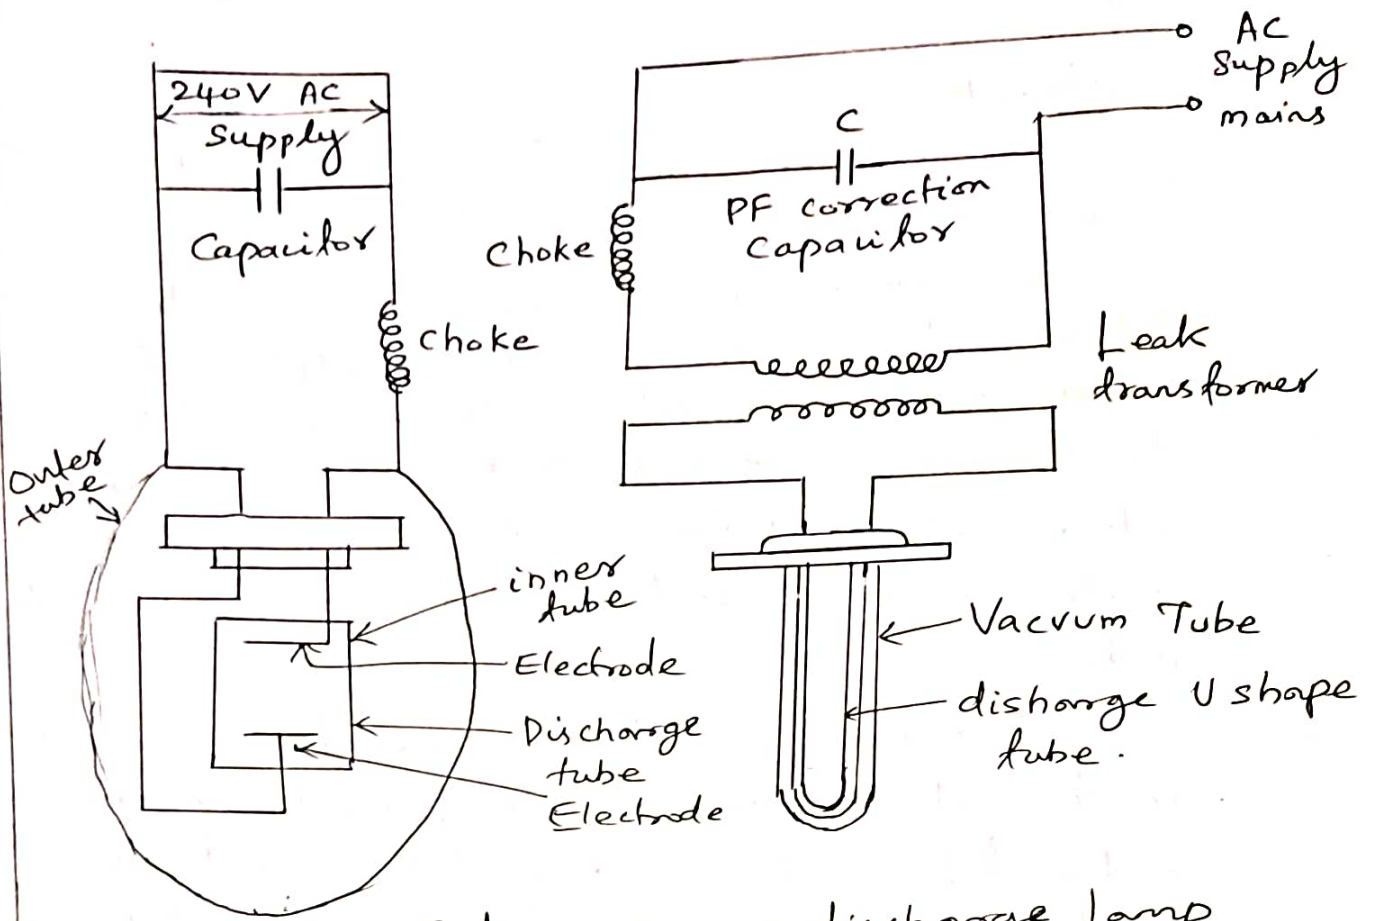 240V AC
supply
Capacitor
Choke
Outer
tube
inner
tube
Electrode
Discharge
tube
Electrode
AC
supply
mains
C
PF correction
Capacitor
Choke
Leak
transformer
Vacvum Tube
disharge U shape
tube.
lamp